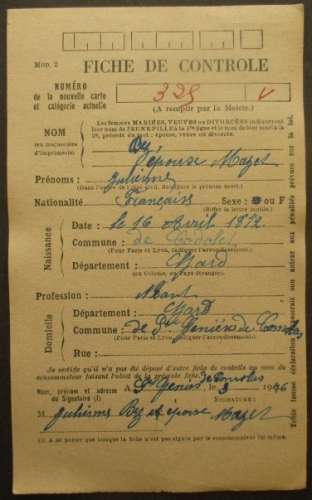 Mod. 2 FICHE DE CONTROLE
NUMÉRO
de la nouvelle carte
et catégorie actuelle
328 V
(A remplir par la Mairie.)
Les femmes MARIÉES, VEUVES ou DIVORCÉES indiqueront
leur nom de JEUNE FILLE à la 1re ligne et le nom de leur mari à la
2e, précédé du mot : épouse, veuve ou divorcée.
NOM
(en majuscules
d'imprimerie)
épouse Mazet
Prénoms : Julienne
Nationalité Française Sexe : ou F
(Biffer la lettre inutile.)
Naissance
Date : le 16 Avril 1872
Commune : de
(Pour Paris et Lyon, indiquer l'arrondissement.)
Département : Gard
(ou Colonie, ou Pays étranger).
Profession :
Domicile
Département : Gard
Commune : de St Geniès de Comolas
(Pour Paris et Lyon, indiquer l'arrondissement.)
Rue :
Je certifie qu'il n'a pas été déposé d'autre fiche de contrôle au nom du
consommateur faisant l'objet de la présente fiche.
Nom, prénom et adresse
du Signataire (1)
A St Geniès de Comolas le 3 1946
SIGNATURE :
M Julienne et épouse Mazet
(1) A ne porter que lorsque la fiche n'est pas signée par le consommateur lui-même.
Toute fausse déclaration exposerait son auteur aux pénalités prévues par la loi.